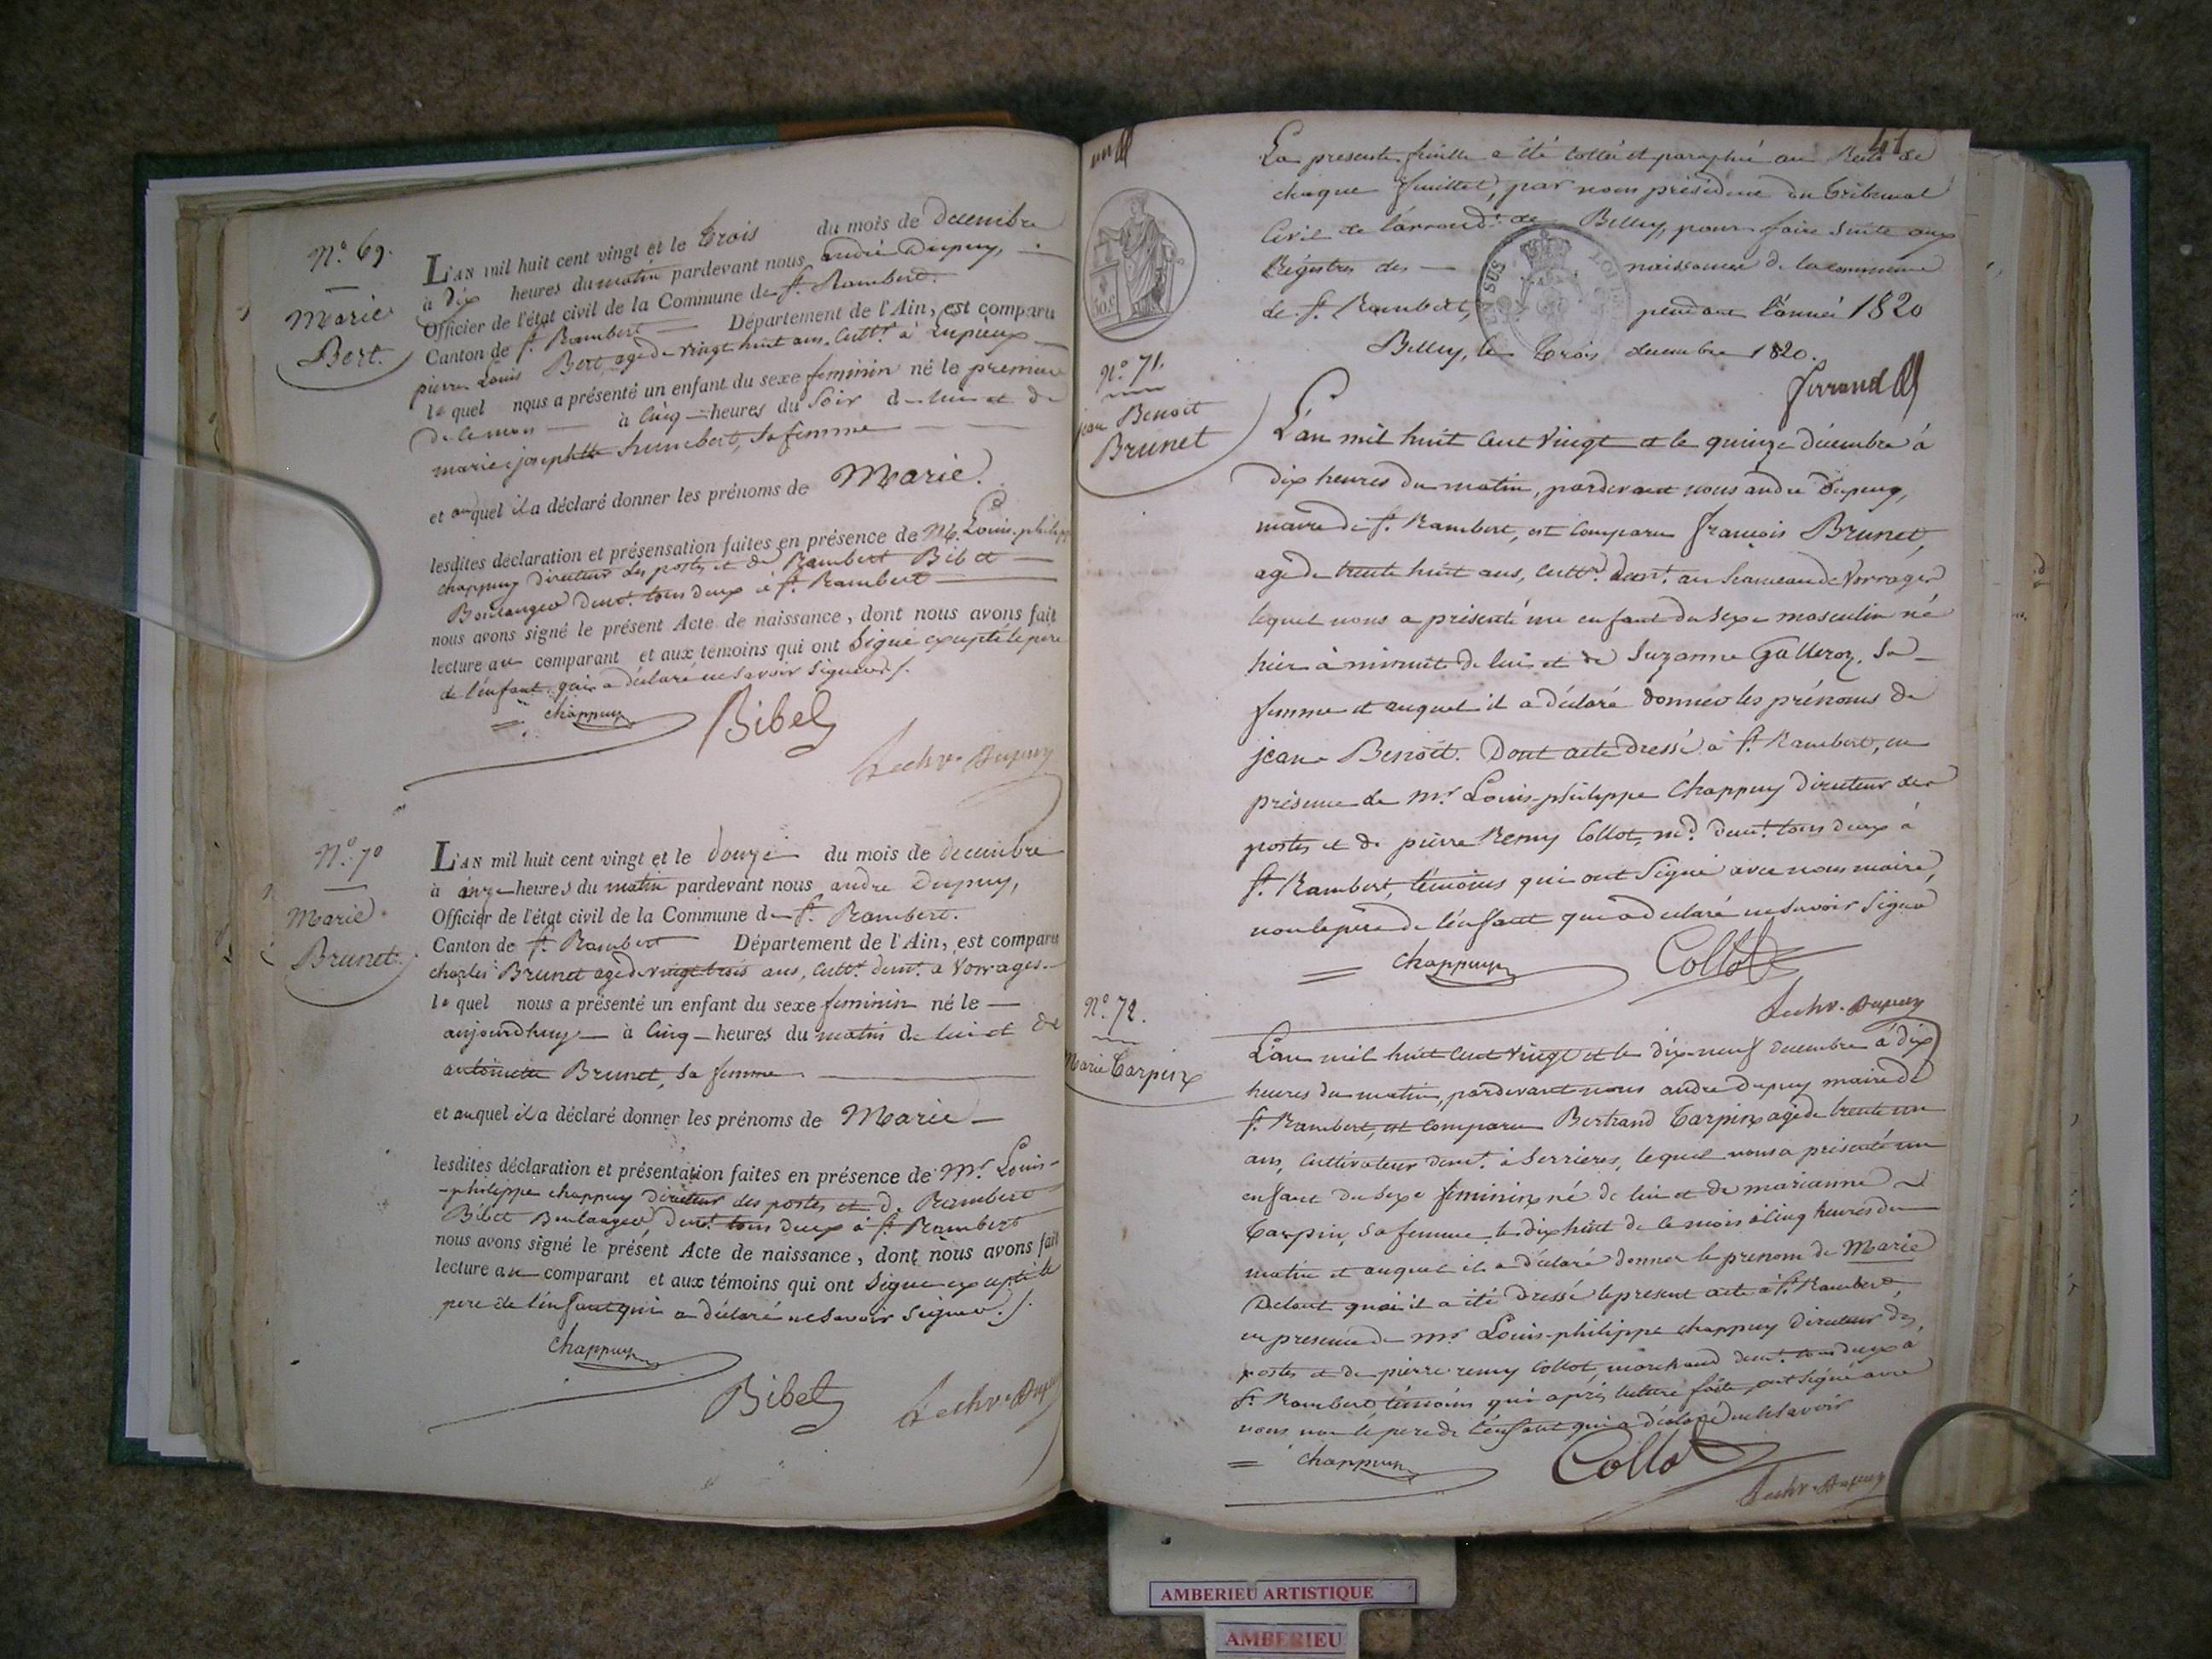 N.º 69.
Marie
Bert.
L'AN mil huit cent vingt et le trois du mois de decembre
à dix heures du matin pardevant nous andré Dupuy,
Officier de l'état civil de la Commune de St. Rambert.
Canton de St. Rambert Département de l'Ain, est comparu
pierre Louis Bert, agé de vingt huit ans, cultr. à
lequel nous a présenté un enfant du sexe feminin né le premier
de ce mois à cinq heures du soir de lui et de
marie josephte humbert, sa femme
et auquel il a déclaré donner les prénoms de Marie.
lesdites déclaration et présensation faites en présence de M. Louis-philippe
chappuy directeur des postes et de Rambert Bibet
Boulanger demt. tous deux à St. Rambert
nous avons signé le présent Acte de naissance, dont nous avons fait
lecture au comparant et aux témoins qui ont signé excepté le pere
de l'enfant qui a déclaré ne savoir signer ./.
chappuy
Bibet
Dupuy
N.º 70
Marie
Brunet.
L'AN mil huit cent vingt et le douze du mois de decembre
à onze heures du matin pardevant nous andre Dupuy,
Officier de l'état civil de la Commune de St. Rambert.
Canton de St. Rambert Département de l'Ain, est comparu
charles Brunet agé de vingt trois ans, cultr. demt. a Vorrages.
lequel nous a présenté un enfant du sexe feminin né le
aujourdhuy à cinq heures du matin de lui et de
antoinette Brunet, sa femme
et auquel il a déclaré donner les prénoms de Marie
lesdites déclaration et présentation faites en présence de Mr. Louis-
-philippe chappuy directeur des postes et de Rambert
Bibet Boulanger demt. tous deux à St. Rambert
nous avons signé le présent Acte de naissance, dont nous avons fait
lecture au comparant et aux témoins qui ont signé excepté le
pere de l'enfant qui a déclaré ne savoir signer ./.
chappuy
Bibet
41
La presente feuille a été cottée et paraphée au Recto de
chaque feuillet, par nous président du tribunal
Civil de l'arrondt. de Belley, pour faire suite aux
Régistres des naissances de la commune
de St. Rambert, pendant l'année 1820
Belley, le trois decembre 1820.
ferrand
50 c
N.º 71.
jean Benoit
Brunet
L'an mil huit cent vingt et le quinze décembre à
dix heures du matin, pardevant nous andré Dupuy,
maire de St. Rambert, est comparu françois Brunet,
agé de trente huit ans, cultr. demt. au hameau de Vorrages
lequel nous a présenté un enfant du sexe masculin né
hier à minuit de lui et de Suzanne Galleroz, sa
femme et auquel il a déclaré donner les prénoms de
jean Benoit. Dont acte dressé à St. Rambert, en
présence de Mr. Louis-philippe Chappuy directeur des
postes et de pierre Remy Collot, md. demt. tous deux à
St. Rambert, témoins qui ont signé avec nous maire,
non le père de l'enfant qui a declaré ne savoir signer
Chappuy
Collot
Dupuy
N.º 72.
Marie Tarpin
L'an mil huit cent vingt et le dix neuf decembre à dix
heures du matin, pardevant nous andre Dupuy maire de
St. Rambert, est comparu Bertrand Tarpin agé de trente un
ans, cultivateur demt. à Serrieres, lequel nous a présenté un
enfant du sexe feminin né de lui et de marianne
Tarpin, sa femme le dix huit de ce mois à cinq heures du
matin et auquel il a déclaré donner le prenom de Marie
De tout quoi il a été dressé le present acte à St. Rambert,
en presence de Mr. Louis-philippe chappuy directeur des
postes et de pierre remy Collot, marchand demt. tous deux à
St. Rambert témoins qui après lecture faite, ont signé avec
nous non le pere de l'enfant qui a déclaré ne le savoir
chappuy
Collot
Dupuy
AMBERIEU ARTISTIQUE
AMBERIEU